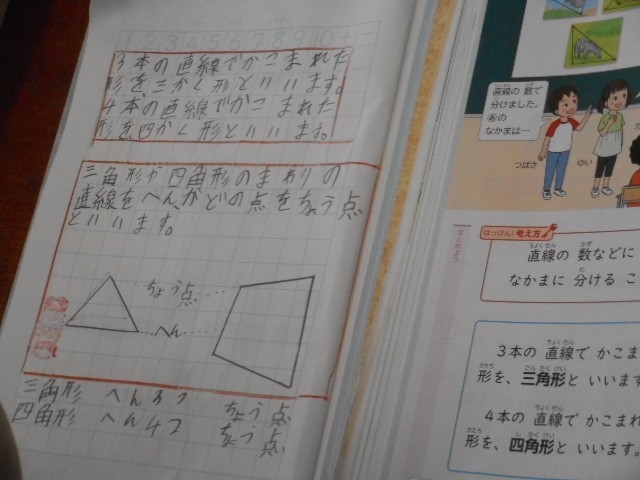 1 2 3 4 5 6 7 8 9 10 + -
3本の直線でかこまれた
形を三かく形といいます。
4本の直線でかこまれた
形を四かく形といいます。
三角形や四角形のまわりの
直線をへんかどの点をちょう点
といいます。
ちょう点
へん
三角形 へん3つ ちょう点
四角形 へん4つ ちょう点
直線の数で
分けました。
あの
なかまは…
つばさ
ゆい
まとめよう
はっけん!考え方
直線の 数などに
なかまに 分ける こ
3本の 直線で かこま
形を、三角形と いいます
4本の 直線で かこまれ
形を、四角形と いいます。